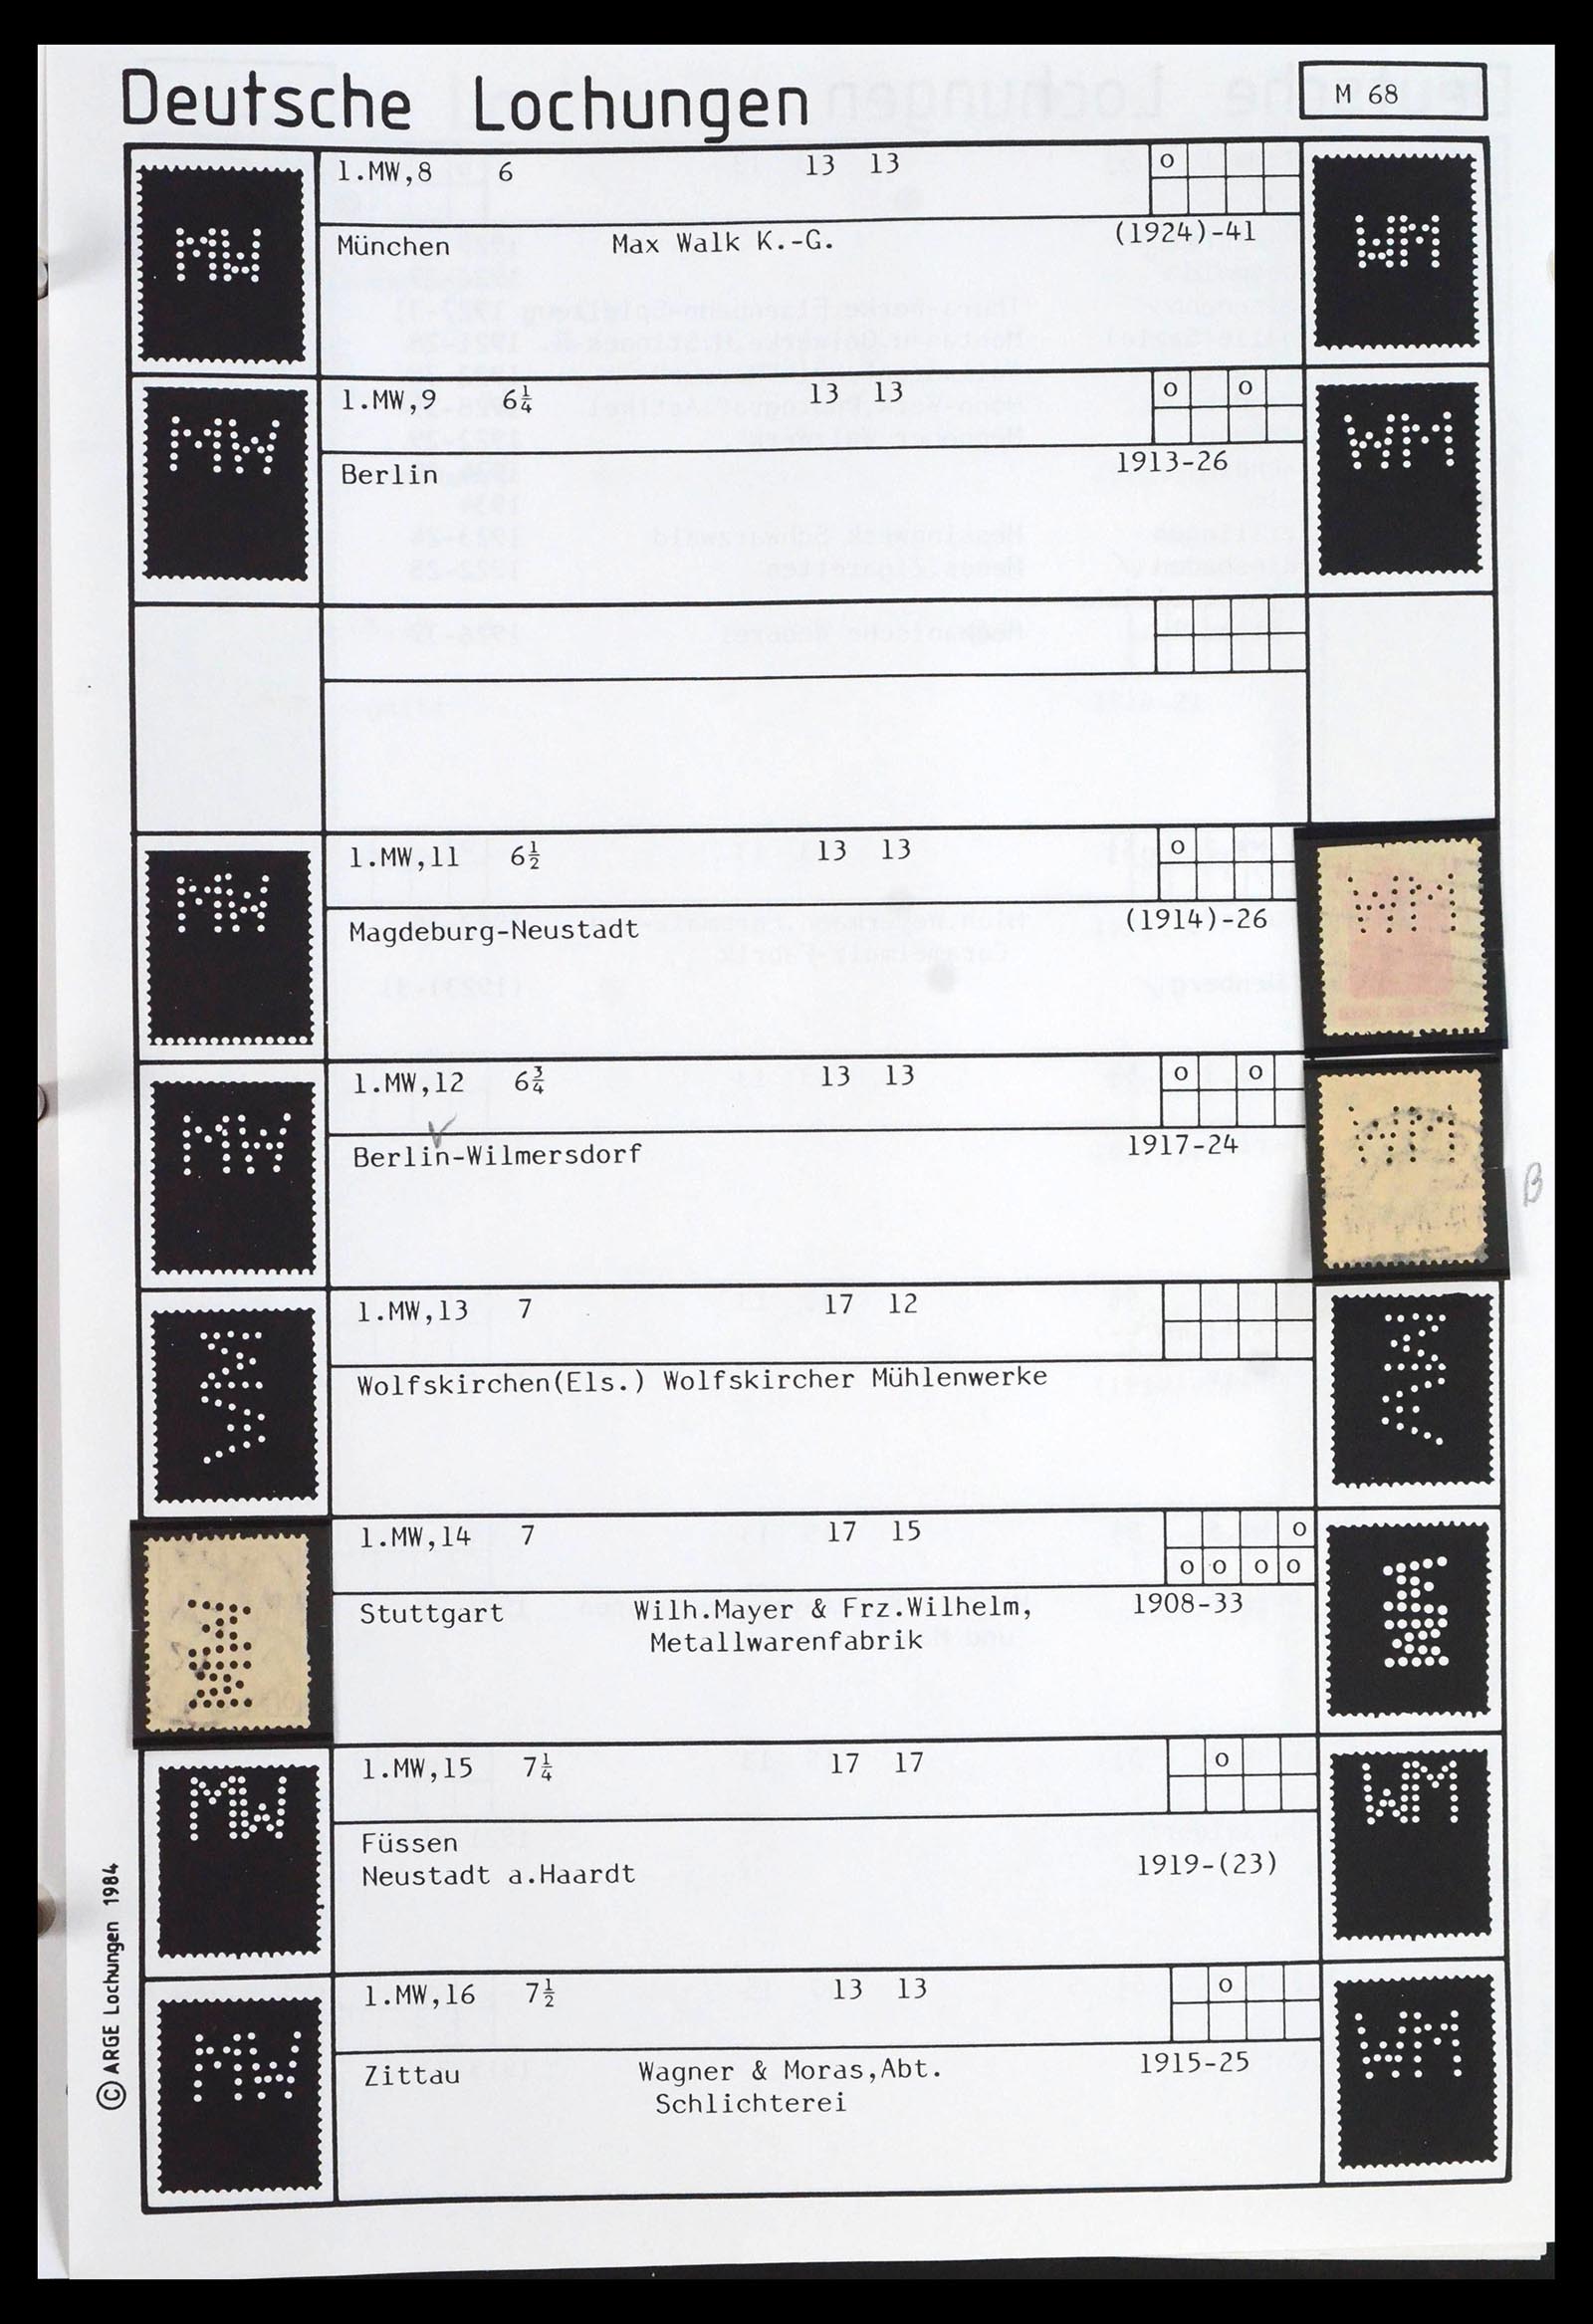 Deutsche Lochungen
M 68
MW
1.MW,8 6 13 13 o
WM
München Max Walk K.-G. (1924)-41
MW
1.MW,9 6¼ 13 13 o o
WM
Berlin 1913-26
MW
1.MW,11 6½ 13 13 o
WM
Magdeburg-Neustadt (1914)-26
MW
1.MW,12 6¾ 13 13 o o
WM
Berlin-Wilmersdorf 1917-24
B
MW
1.MW,13 7 17 12
Wolfskirchen(Els.) Wolfskircher Mühlenwerke
1.MW,14 7 17 15 o
o o o o
Stuttgart Wilh.Mayer & Frz.Wilhelm, 1908-33
Metallwarenfabrik
MW
1.MW,15 7¼ 17 17 o
WM
Füssen
Neustadt a.Haardt 1919-(23)
MW
1.MW,16 7½ 13 13 o
WM
Zittau Wagner & Moras,Abt. 1915-25
Schlichterei
© ARGE Lochungen 1984